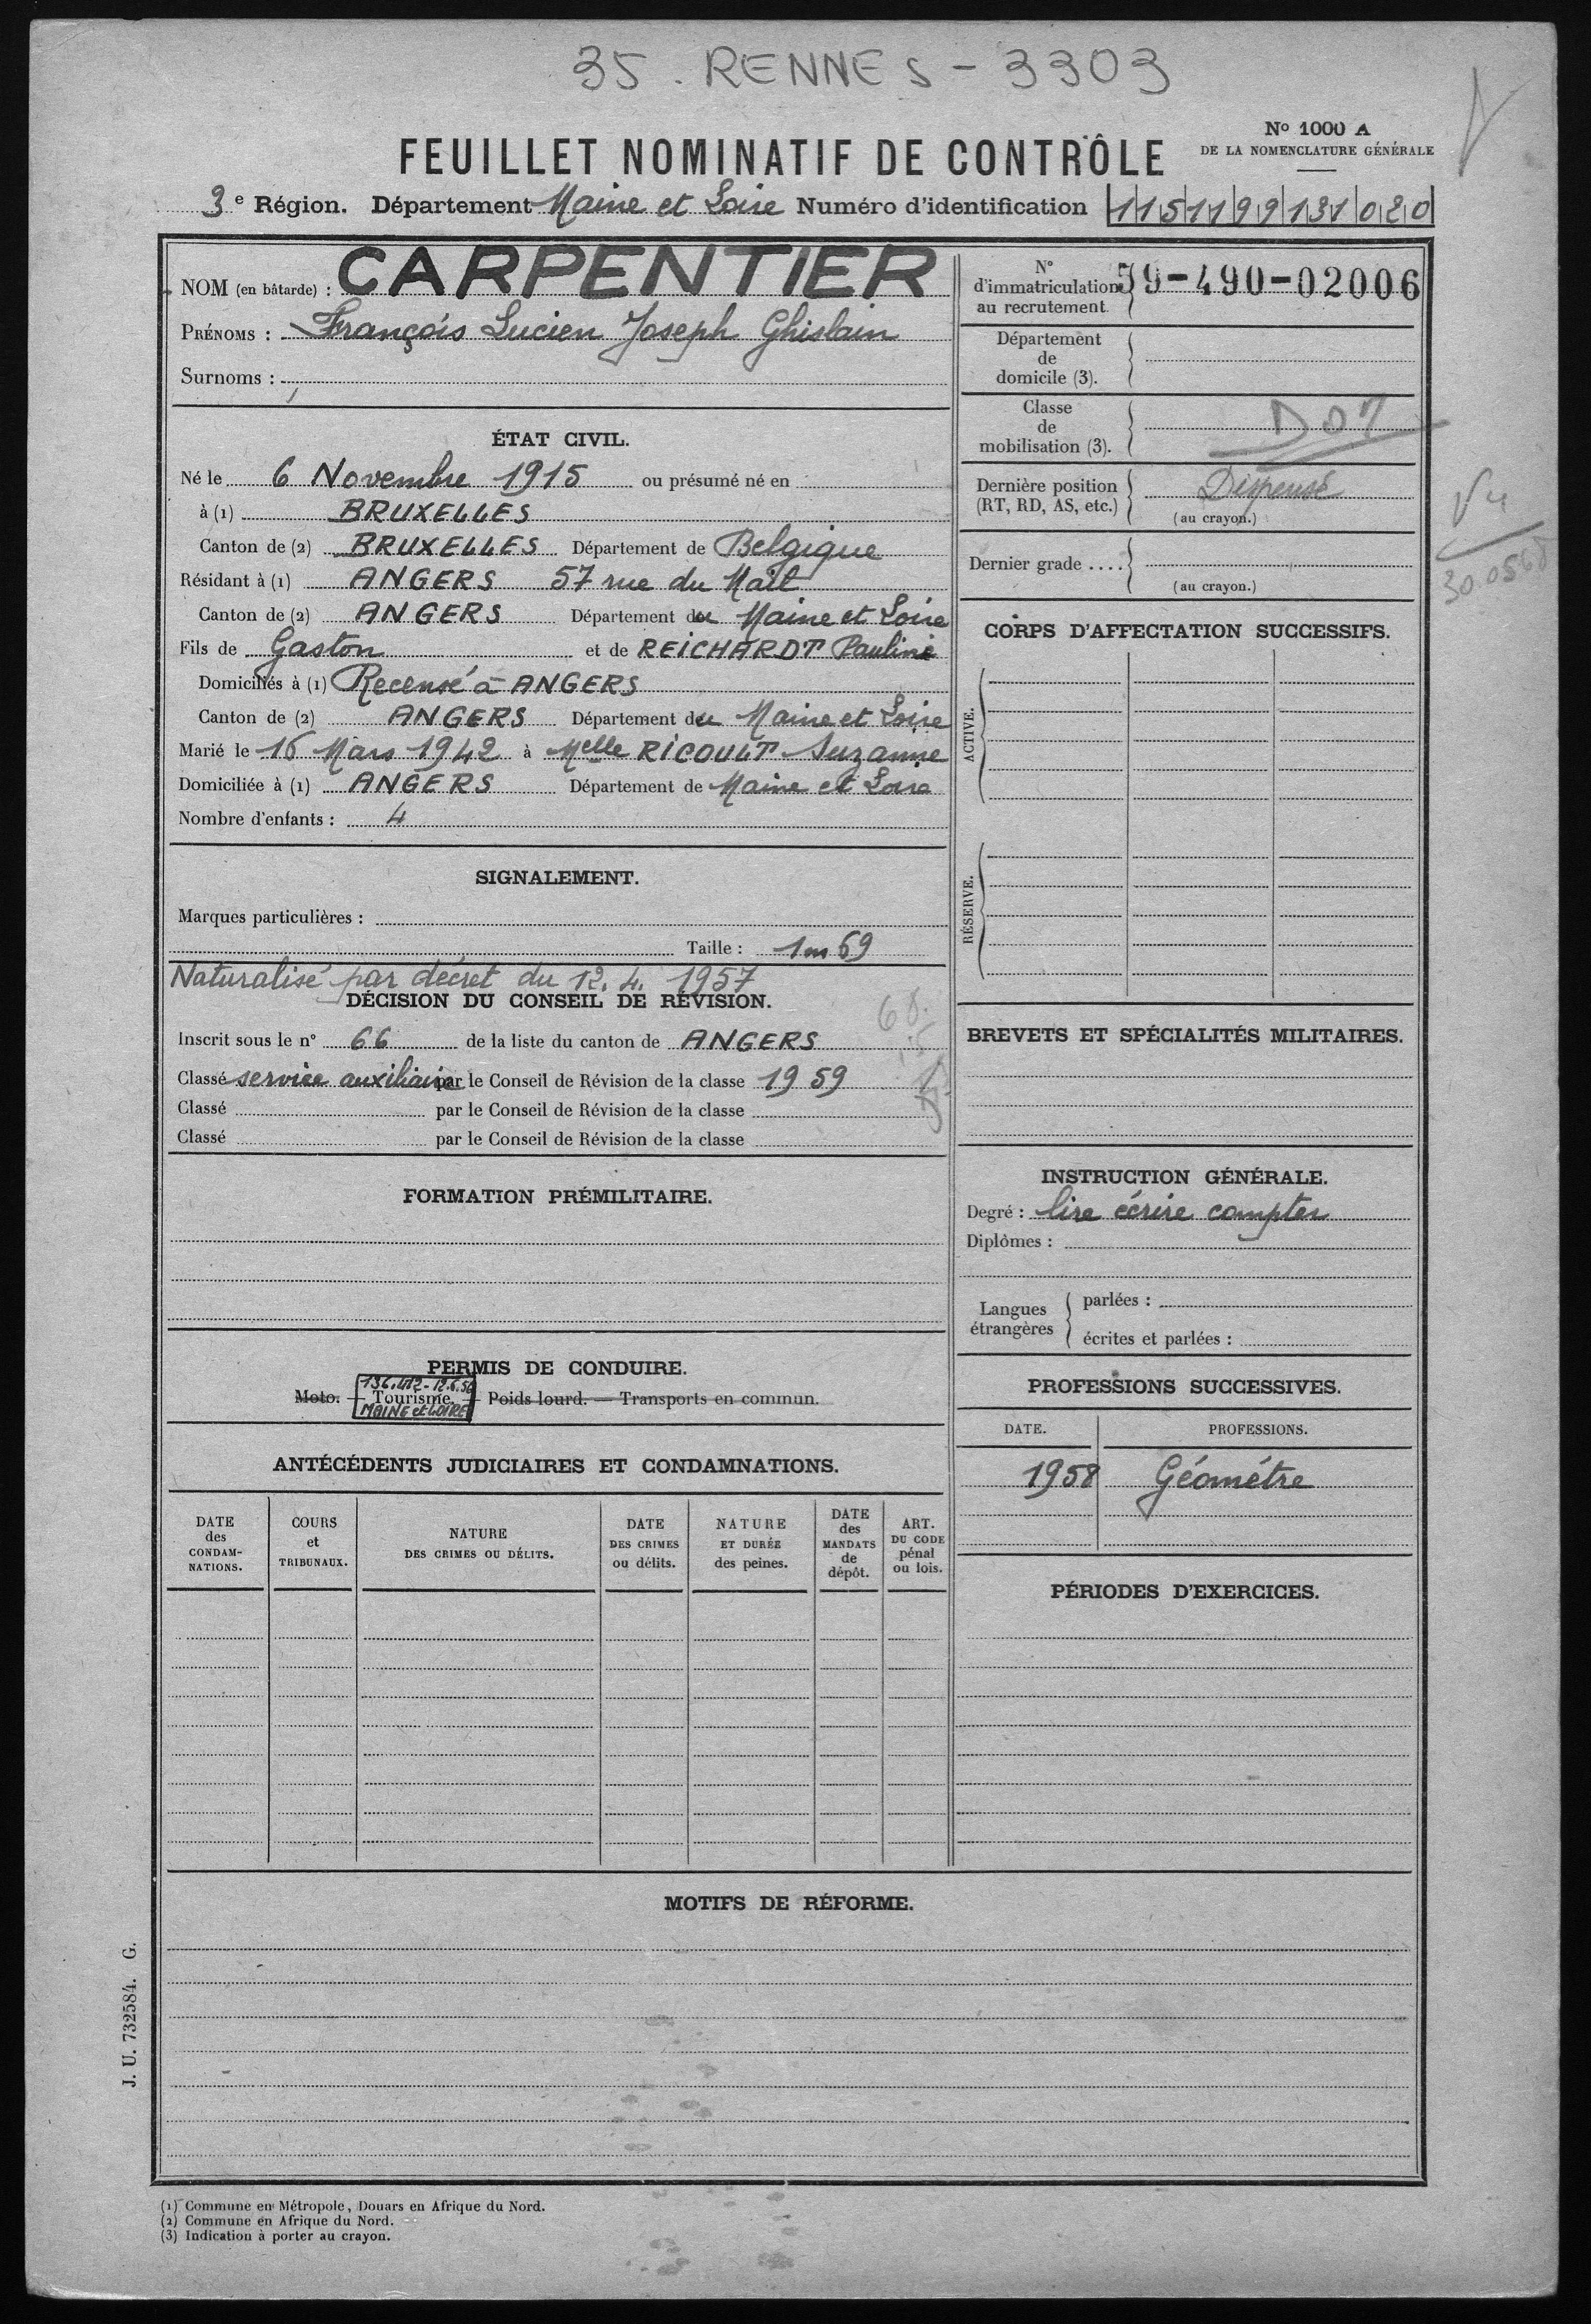 35. RENNES - 3303
FEUILLET NOMINATIF DE CONTRÔLE
No 1000 A
DE LA NOMENCLATURE GÉNÉRALE
3e Région. Département Maine et Loire Numéro d'identification 1151199131020
NOM (en bâtarde) : CARPENTIER
PRÉNOMS : François Lucien Joseph Ghislain
Surnoms :
ÉTAT CIVIL.
Né le 6 Novembre 1915 ou présumé né en
à (1) BRUXELLES
Canton de (2) BRUXELLES Département de Belgique
Résidant à (1) ANGERS 57 rue du Mail
Canton de (2) ANGERS Département du Maine et Loire
Fils de Gaston et de REICHARDT Pauline
Domiciliés à (1) Recensé à ANGERS
Canton de (2) ANGERS Département du Maine et Loire
Marié le 16 Mars 1942 à Melle RICOULT Suzanne
Domiciliée à (1) ANGERS Département de Maine et Loire
Nombre d'enfants : 4
SIGNALEMENT.
Marques particulières :
Taille : 1m69
Naturalisé par décret du 12.4.1957
DÉCISION DU CONSEIL DE RÉVISION.
Inscrit sous le n° 66 de la liste du canton de ANGERS
Classé service auxiliaire par le Conseil de Révision de la classe 1959
Classé par le Conseil de Révision de la classe
Classé par le Conseil de Révision de la classe
FORMATION PRÉMILITAIRE.
PERMIS DE CONDUIRE.
136.412-12.6.56
Moto. — Tourisme. — Poids lourd. — Transports en commun.
MAINE et LOIRE
ANTÉCÉDENTS JUDICIAIRES ET CONDAMNATIONS.
DATE des CONDAM-NATIONS.
COURS et TRIBUNAUX.
NATURE DES CRIMES OU DÉLITS.
DATE DES CRIMES ou délits.
NATURE ET DURÉE des peines.
DATE des MANDATS de dépôt.
ART. DU CODE pénal ou lois.
N° d'immatriculation au recrutement. 59-490-02006
Département de domicile (3).
Classe de mobilisation (3). D07
Dernière position (RT, RD, AS, etc.) Dispensé
(au crayon.)
Vu
Dernier grade ....
(au crayon.)
CORPS D'AFFECTATION SUCCESSIFS.
ACTIVE.
RÉSERVE.
BREVETS ET SPÉCIALITÉS MILITAIRES.
INSTRUCTION GÉNÉRALE.
Degré : lire écrire compter
Diplômes :
Langues étrangères
parlées :
écrites et parlées :
PROFESSIONS SUCCESSIVES.
DATE. PROFESSIONS.
1958 Géométre
PÉRIODES D'EXERCICES.
MOTIFS DE RÉFORME.
J. U. 732584. G.
(1) Commune en Métropole, Douars en Afrique du Nord.
(2) Commune en Afrique du Nord.
(3) Indication à porter au crayon.